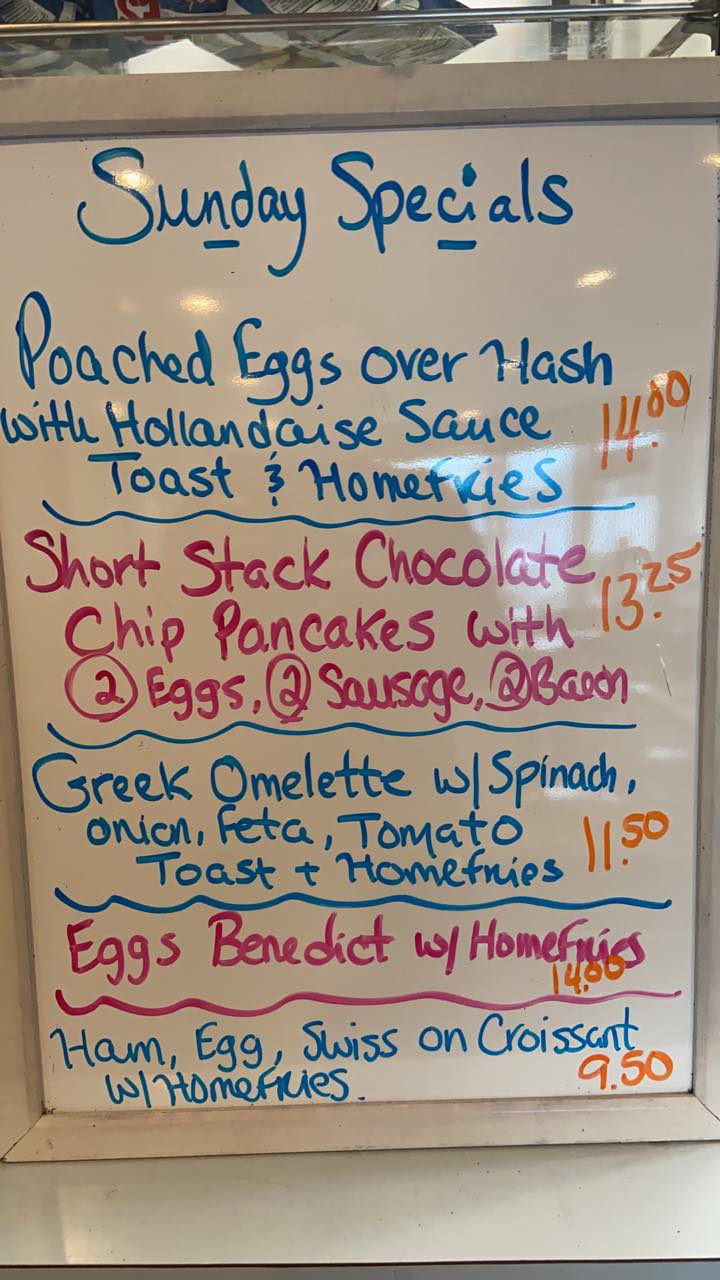 Sunday Specials
Poached Eggs over Hash
with Hollandaise Sauce 14.00
Toast & Homefries
Short Stack Chocolate
Chip Pancakes with 13.25
2 Eggs, 2 Sausage, 2 Bacon
Greek Omelette w/ Spinach,
onion, Feta, Tomato
Toast + Homefries 11.50
Eggs Benedict w/ Homefries
14.00
Ham, Egg, Swiss on Croissant
w/ Homefries. 9.50